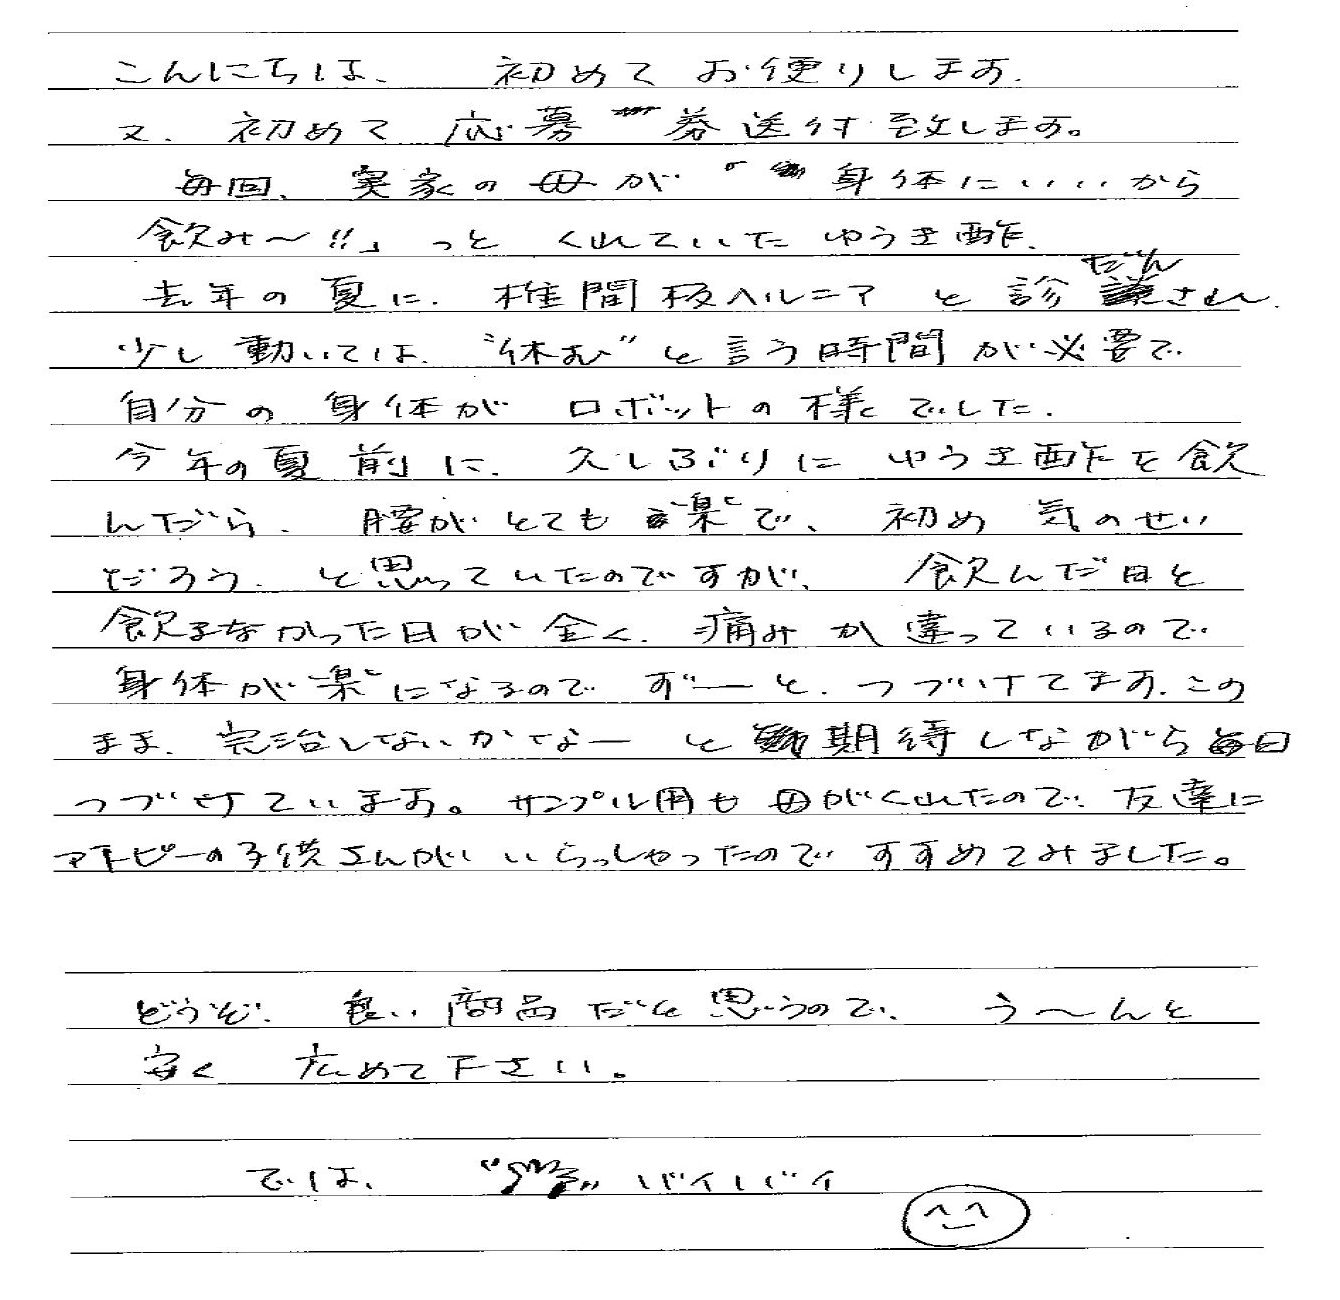 こんにちは、 初めて お便りします.
又、初めて 応募 券送付 致します。
毎回、実家の母が 「身体にいいから
飲み〜!!」っと くれていた ゆうき酢.
去年の夏に、椎間板ヘルニア と 診だんされ.
少し 動いては、“休む”と言う時間が必要で
自分の 身体が ロボットの様でした.
今年の夏前に、久しぶりに ゆうき酢を飲
んだら、腰がとても 楽で、初め 気のせい
だろう、と思っていたのですが、 飲んだ日と
飲まなかった日が全く、痛みが違っているので
身体が楽になるので ずーと、つづけてます.この
まま、完治しないかなー と 期待しながら毎日
つづけています。サンプル用も 母がくれたので、友達に
アトピーの子供さんが いらっしゃったので すすめてみました。
どうぞ、良い商品だと思うので、 う〜んと
安く 広めて下さい。
では、 バイバイ